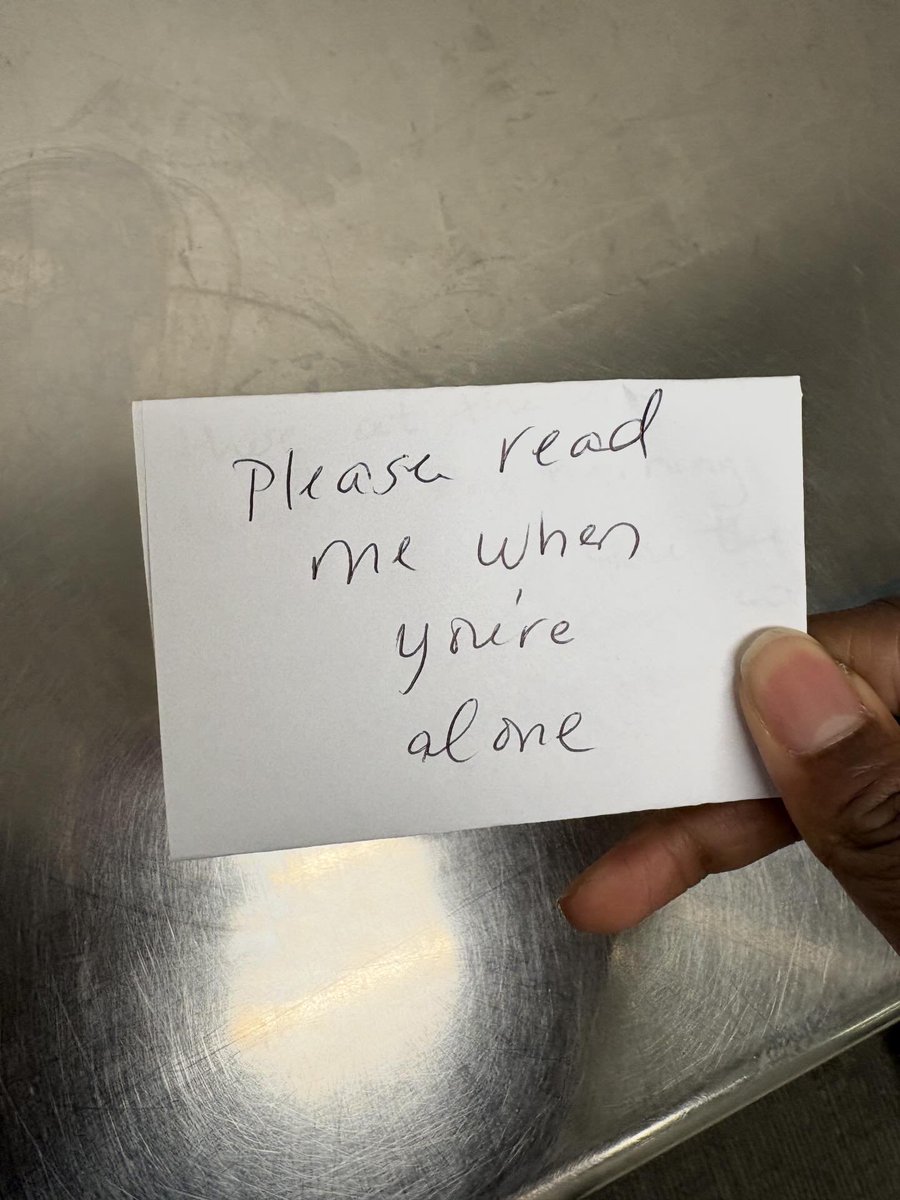 Please read
me when
you're
alone